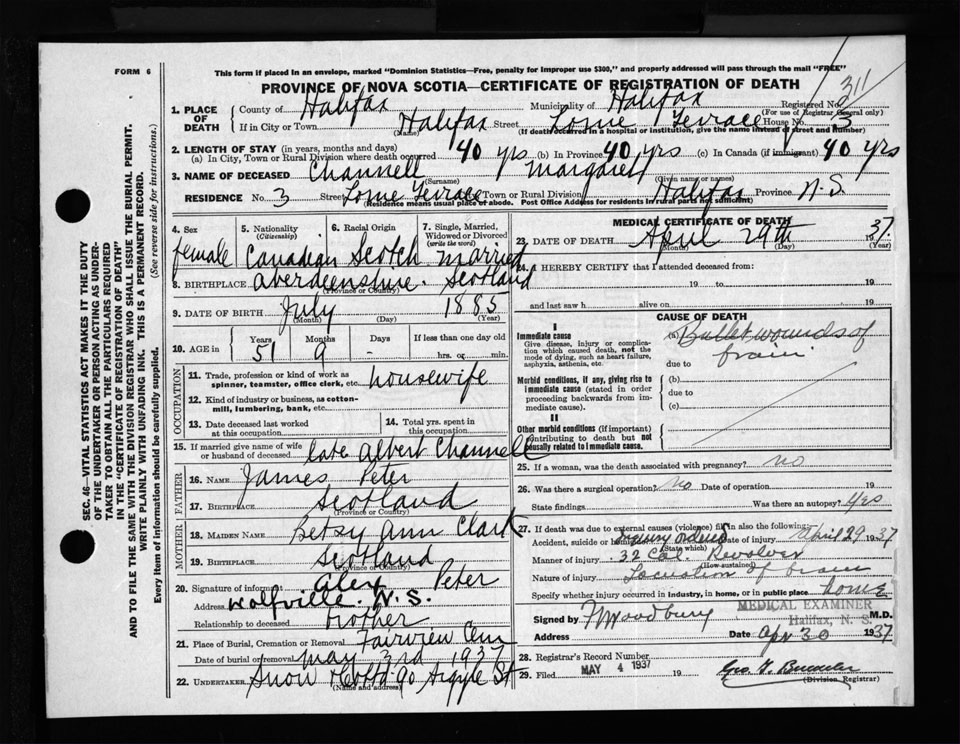 FORM 6
This form if placed in an envelope, marked "Dominion Statistics—Free, penalty for improper use $300," and properly addressed will pass through the mail "FREE"
PROVINCE OF NOVA SCOTIA—CERTIFICATE OF REGISTRATION OF DEATH
311
1. PLACE OF DEATH
County of Halifax Municipality of Halifax Registered No.
(For use of Registrar General only)
If in City or Town Halifax Street Lorne Terrace House No. 3
(Name) (If death occurred in a hospital or institution, give the name instead of street and number)
2. LENGTH OF STAY (in years, months and days)
(a) In City, Town or Rural Division where death occurred 40 yrs (b) In Province 40 yrs (c) In Canada (if immigrant) 40 yrs
3. NAME OF DECEASED Channell Margaret
(Surname) (Given name or names)
RESIDENCE No. 3 Street Lorne Terrace Town or Rural Division Halifax Province N.S.
(Residence means usual place of abode. Post Office Address for residents in rural parts not sufficient)
4. Sex 5. Nationality (Citizenship) 6. Racial Origin 7. Single, Married, Widowed or Divorced (write the word)
female Canadian Scotch married
8. BIRTHPLACE Aberdeenshire. Scotland
(Province or Country)
9. DATE OF BIRTH July 1885
(Month) (Day) (Year)
10. AGE in Years Months Days If less than one day old
51 9 - hrs. or min.
OCCUPATION
11. Trade, profession or kind of work as spinner, teamster, office clerk, etc. housewife
12. Kind of industry or business, as cotton-mill, lumbering, bank, etc.
13. Date deceased last worked at this occupation
14. Total yrs. spent in this occupation
15. If married give name of wife or husband of deceased late Albert Channell
FATHER
16. NAME James Peter
17. BIRTHPLACE Scotland
(Province or Country)
MOTHER
18. MAIDEN NAME Betsy Ann Clark
19. BIRTHPLACE Scotland
(Province or Country)
20. Signature of informant Alex Peter
Address Wolfville. N.S.
Relationship to deceased brother
21. Place of Burial, Cremation or Removal Fairview Cem
Date of burial or removal May 3rd 1937
22. UNDERTAKER Snow & Co Ltd 90 Argyle St
(Name and address)
MEDICAL CERTIFICATE OF DEATH
23. DATE OF DEATH April 29th 1937.
(Month) (Day) (Year)
24. I HEREBY CERTIFY that I attended deceased from:
19 to 19
and last saw h alive on 19
CAUSE OF DEATH
I
Immediate cause
Give disease, injury or complication which caused death, not the mode of dying, such as heart failure, asphyxia, asthenia, etc.
(a) Bullet wounds of brain
due to
Morbid conditions, if any, giving rise to immediate cause (stated in order proceeding backwards from immediate cause).
(b)
due to
(c)
II
Other morbid conditions (if important) contributing to death but not causally related to immediate cause.
25. If a woman, was the death associated with pregnancy? no
26. Was there a surgical operation? no Date of operation 19
State findings Was there an autopsy? yes
27. If death was due to external causes (violence) fill in also the following:
Accident, suicide or homicide Inquiry ordered Date of injury April 29 1937
(State which)
Manner of injury 32 Cal. Revolver
(How sustained)
Nature of injury Laceration of brain
Specify whether injury occurred in industry, in home, or in public place home
Signed by M.D.
MEDICAL EXAMINER
Halifax, N. S.
Address Date Apr 30 1937.
28. Registrar's Record Number
29. Filed MAY 4 1937 19
(Division Registrar)
SEC. 46—VITAL STATISTICS ACT MAKES IT THE DUTY
OF THE UNDERTAKER OR PERSON ACTING AS UNDER-
TAKER TO OBTAIN ALL THE PARTICULARS REQUIRED
IN THE "CERTIFICATE OF REGISTRATION OF DEATH"
AND TO FILE THE SAME WITH THE DIVISION REGISTRAR WHO SHALL ISSUE THE BURIAL PERMIT.
WRITE PLAINLY WITH UNFADING INK. THIS IS A PERMANENT RECORD.
Every item of information should be carefully supplied. (See reverse side for instructions.)